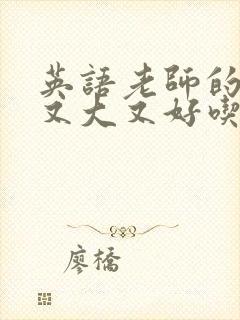 英語老師的
又大又好喫
廖橋